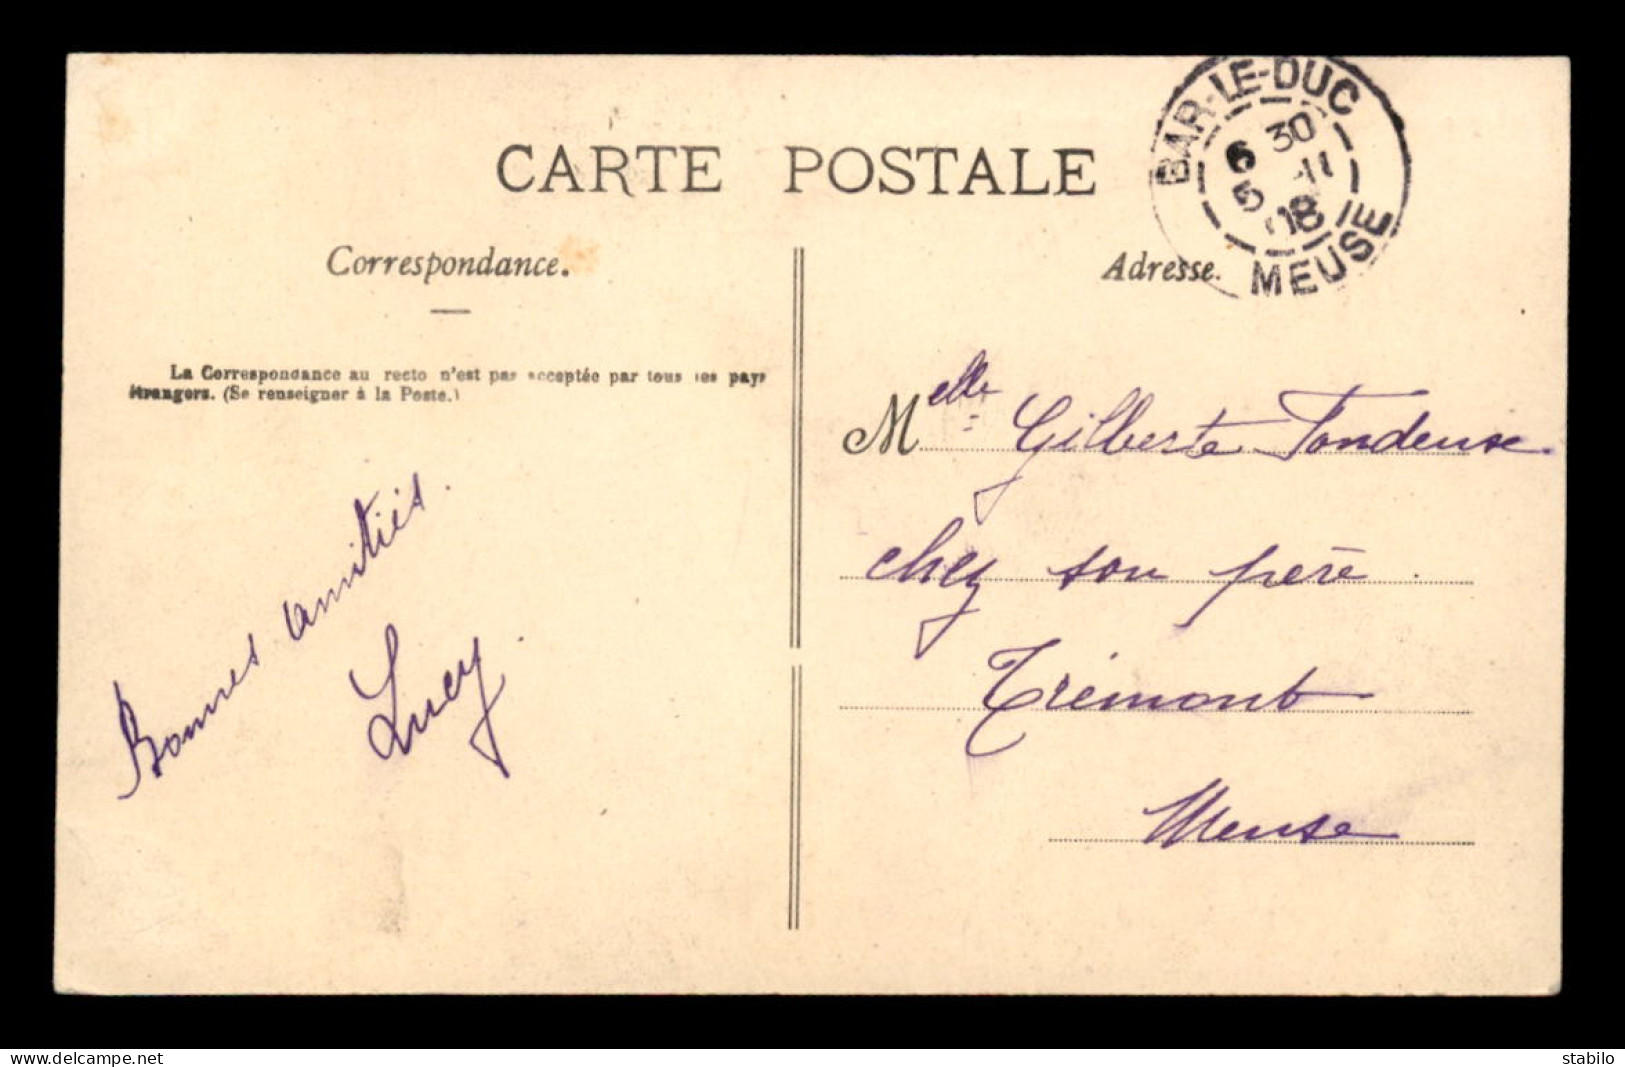 CARTE POSTALE
BAR-LE-DUC
6 30
5 -11
08
MEUSE
Correspondance.
Adresse.
La Correspondance au recto n'est pas acceptée par tous les pays
étrangers. (Se renseigner à la Poste.)
Bonnes amitiés.
Lucy.
Melle Gilberte Tondeuse
chez son père
Trémont
Meuse
delcampe.net
stabilo